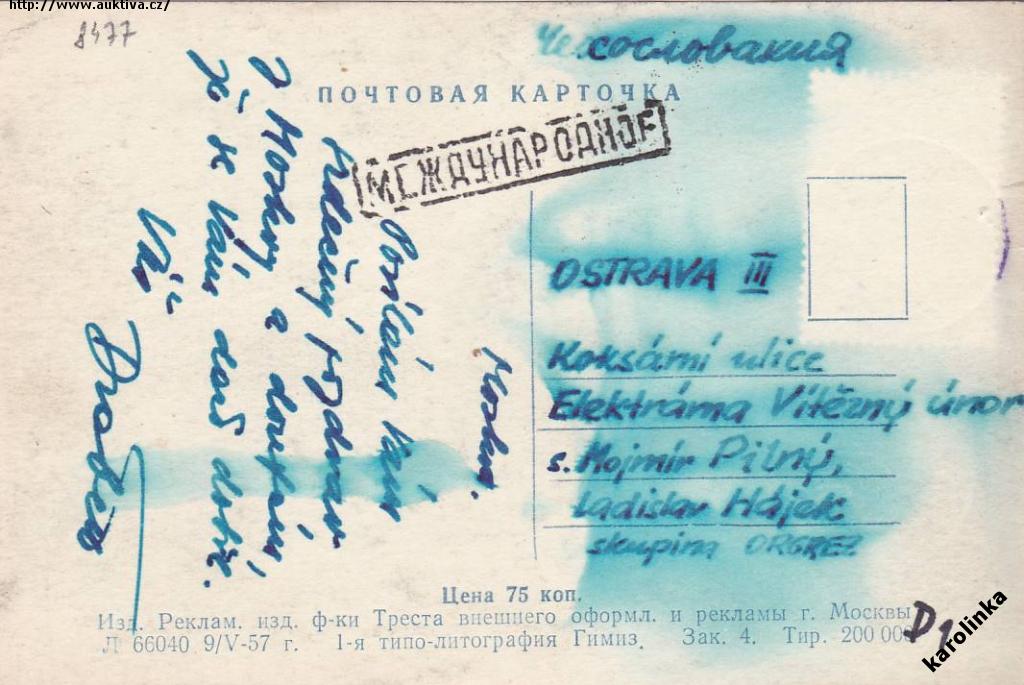 http://www.auktiva.cz/
8477
Чехословакия
ПОЧТОВАЯ КАРТОЧКА
МЕЖДУНАРОДНОЕ
Moskva.
Posílám Vám
srdečný pozdrav
z Moskvy a doufám,
že se Vám daří dobře.
Váš
OSTRAVA III
Koksární ulice
Elektrárna Vítězný únor
s. Mojmír Pilný,
Ladislav Hájek
skupina ORGREZ
Цена 75 коп.
Изд. Реклам. изд. ф-ки Треста внешнего оформл. и рекламы г. Москвы
Л 66040 9/V-57 г. 1-я типо-литография Гимиз. Зак. 4. Тир. 200 000
D1
karolinka